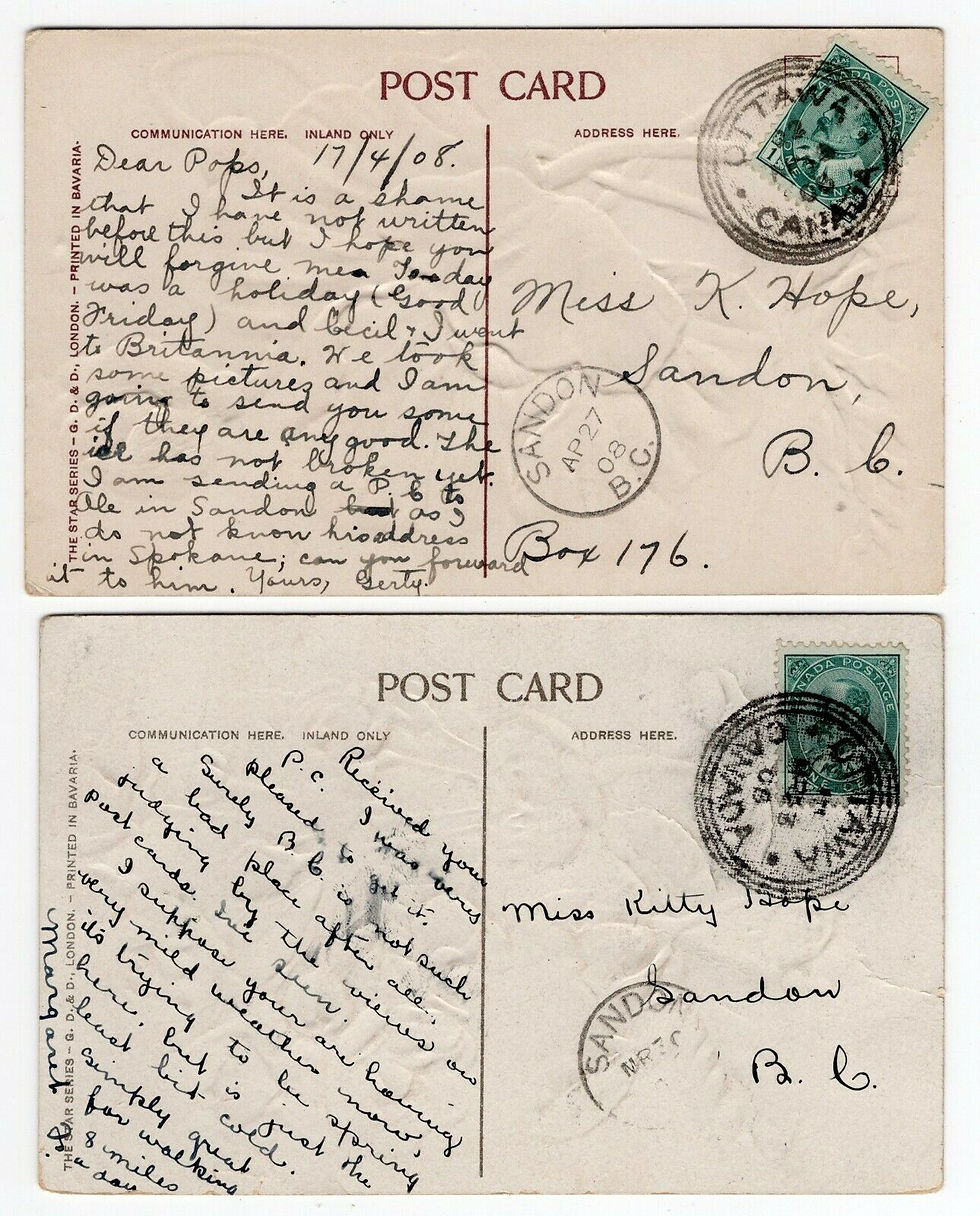 POST CARD
COMMUNICATION HERE. INLAND ONLY
ADDRESS HERE.
THE STAR SERIES – G. D. & D., LONDON. – PRINTED IN BAVARIA.
Dear Pops, 17/4/08.
It is a shame
that I have not written
before this but I hope you
will forgive me. Today
was a holiday (Good
Friday) and Cecil & I went
to Britannia. We took
some pictures and I am
going to send you some
if they are any good. The
ice has not broken yet.
I am sending a P. C to
Ale in Sandon as I
do not know his address
in Spokane; can you forward
it to him. Yours, Gerty.
OTTAWA
CANADA
CANADA POSTAGE
Miss K. Hope,
Sandon,
B. C.
Box 176.
SANDON
AP 27
08
B.C.
POST CARD
COMMUNICATION HERE. INLAND ONLY
ADDRESS HERE.
THE STAR SERIES – G. D. & D., LONDON. – PRINTED IN BAVARIA.
Received your
P.C. I was very
pleased to get it.
Surely B.C. is not such
a bad place after all,
judying by the views on
post cards. I've seen.
I suppose your are having
very mild weather now,
its trying to be spring
here, but is just the
least bit cold.
Simply great
for walking
8 miles
a day
Margaret
CANADA POSTAGE
OTTAWA
CANADA
08
Miss Kitty Hope
Sandon
B. C.
SANDON
MR 30